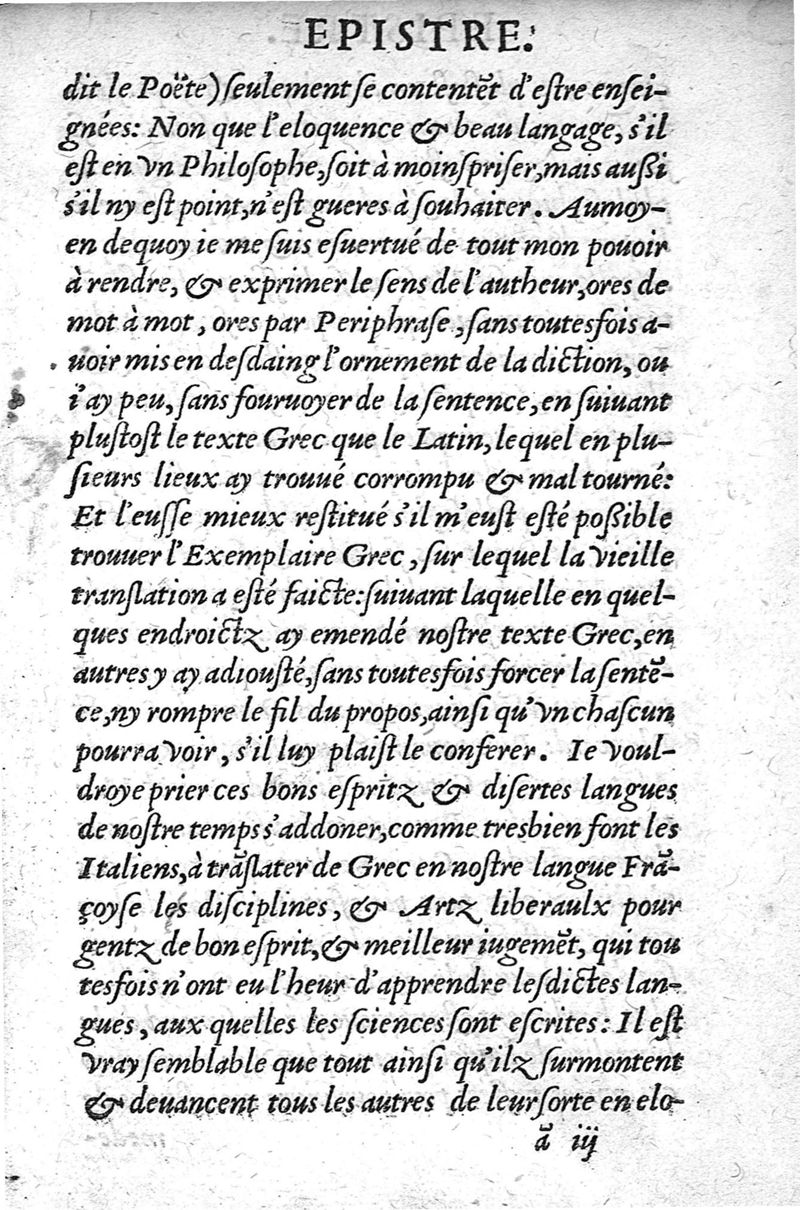 EPISTRE.
dit le Poëte) ſeulement ſe contentēt d'eſtre enſei-
gnées: Non que l'eloquence & beau langage, s'il
eſt en vn Philoſophe, ſoit à moinſpriſer, mais auſſi
s'il ny eſt point, n'eſt gueres à ſouhaiter. Aumoy-
en dequoy ie me ſuis eſuertué de tout mon pouoir
à rendre, & exprimer le ſens de l'autheur, ores de
mot à mot, ores par Periphraſe, ſans toutesfois a-
uoir mis en deſdaing l'ornement de la diction, ou
i'ay peu, ſans fouruoyer de la ſentence, en ſuiuant
pluſtoſt le texte Grec que le Latin, lequel en plu-
ſieurs lieux ay trouué corrompu & mal tourné:
Et l'euſſe mieux reſtitué s'il m'euſt eſté poſſible
trouuer l'Exemplaire Grec, ſur lequel la vieille
tranſlation a eſté faicte: ſuiuant laquelle en quel-
ques endroictz ay emendé noſtre texte Grec, en
autres y ay adiouſté, ſans toutesfois forcer la ſentē-
ce, ny rompre le fil du propos, ainſi qu'vn chaſcun
pourra voir, s'il luy plaiſt le conferer. Ie voul-
droye prier ces bons eſpritz & diſertes langues
de noſtre temps s'addoner, comme tresbien font les
Italiens, à trāſlater de Grec en noſtre langue Frā-
çoyſe les diſciplines, & Artz liberaulx pour
gentz de bon eſprit, & meilleur iugemēt, qui tou
tesfois n'ont eu l'heur d'apprendre leſdictes lan-
gues, aux quelles les ſciences ſont eſcrites: Il eſt
vray ſemblable que tout ainſi qu'ilz ſurmontent
& deuancent tous les autres de leur ſorte en elo-
ā iij